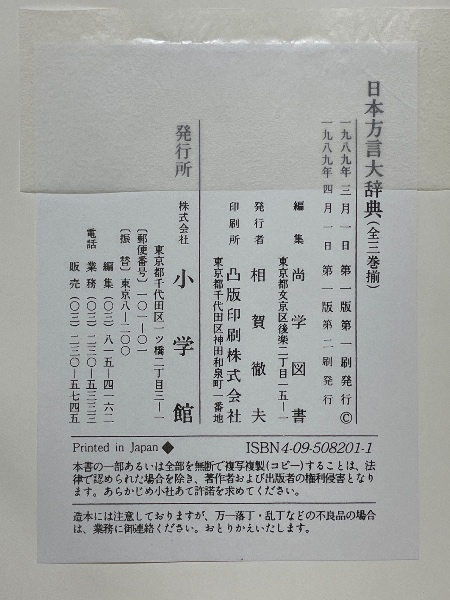 日本方言大辞典（全三巻揃）
一九八九年 三月一日 第一版第一刷発行 ©
一九八九年 四月一日 第一版第二刷発行
編集 尚学図書
東京都文京区後楽二丁目一五ー一
発行者 相賀徹夫
印刷所 凸版印刷株式会社
東京都千代田区神田和泉町一番地
発行所 株式会社 小学館
東京都千代田区一ツ橋二丁目三ー一
〔郵便番号〕一〇一ー〇一
〔振替〕東京八ー二〇〇
電話 編集（〇三）八一五ー四一六二
業務（〇三）二三〇ー五三三三
販売（〇三）二三〇ー五七四五
Printed in Japan ◆ ISBN4-09-508201-1
本書の一部あるいは全部を無断で複写複製(コピー)することは、法
律で認められた場合を除き、著作者および出版者の権利侵害となり
ます。あらかじめ小社あて許諾を求めてください。
造本には注意しておりますが、万一落丁・乱丁などの不良品の場合
は、業務に御連絡ください。おとりかえいたします。